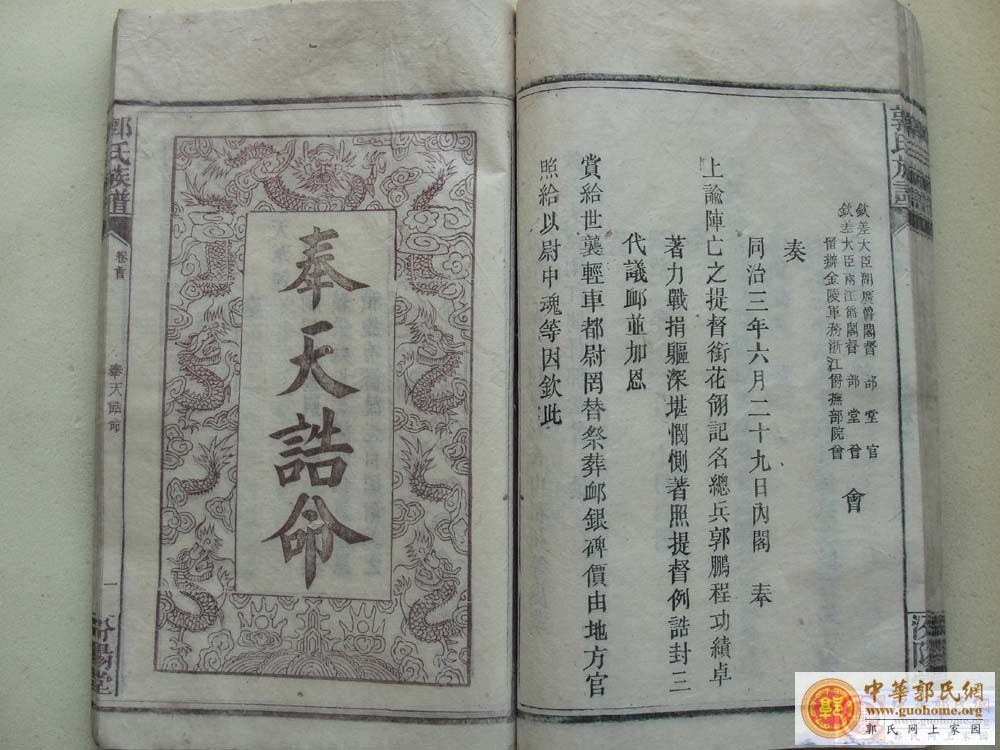 郭氏族譜
欽差大臣湖廣爵閣督 部 堂 官
欽差大臣兩江爵閣督 部 堂 曾 會
督辦金陵軍務浙江爵撫部院曾
奏
同治三年六月二十九日內閣 奉
上諭陣亡之提督銜花翎記名總兵郭鵬程功績卓
著力戰捐驅深堪憫惻著照提督例誥封三
代議卹並加恩
賞給世襲輕車都尉罔替祭葬卹銀碑價由地方官
照給以尉中魂等因欽此
奉天誥命
郭氏族譜
卷首
奉天誥命
一
汾陽堂
中華郭氏網
www.guohome.org
郭氏网上家园